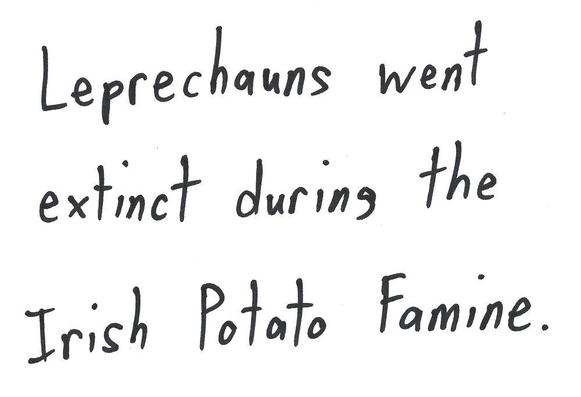 Leprechauns went
extinct during the
Irish Potato Famine.